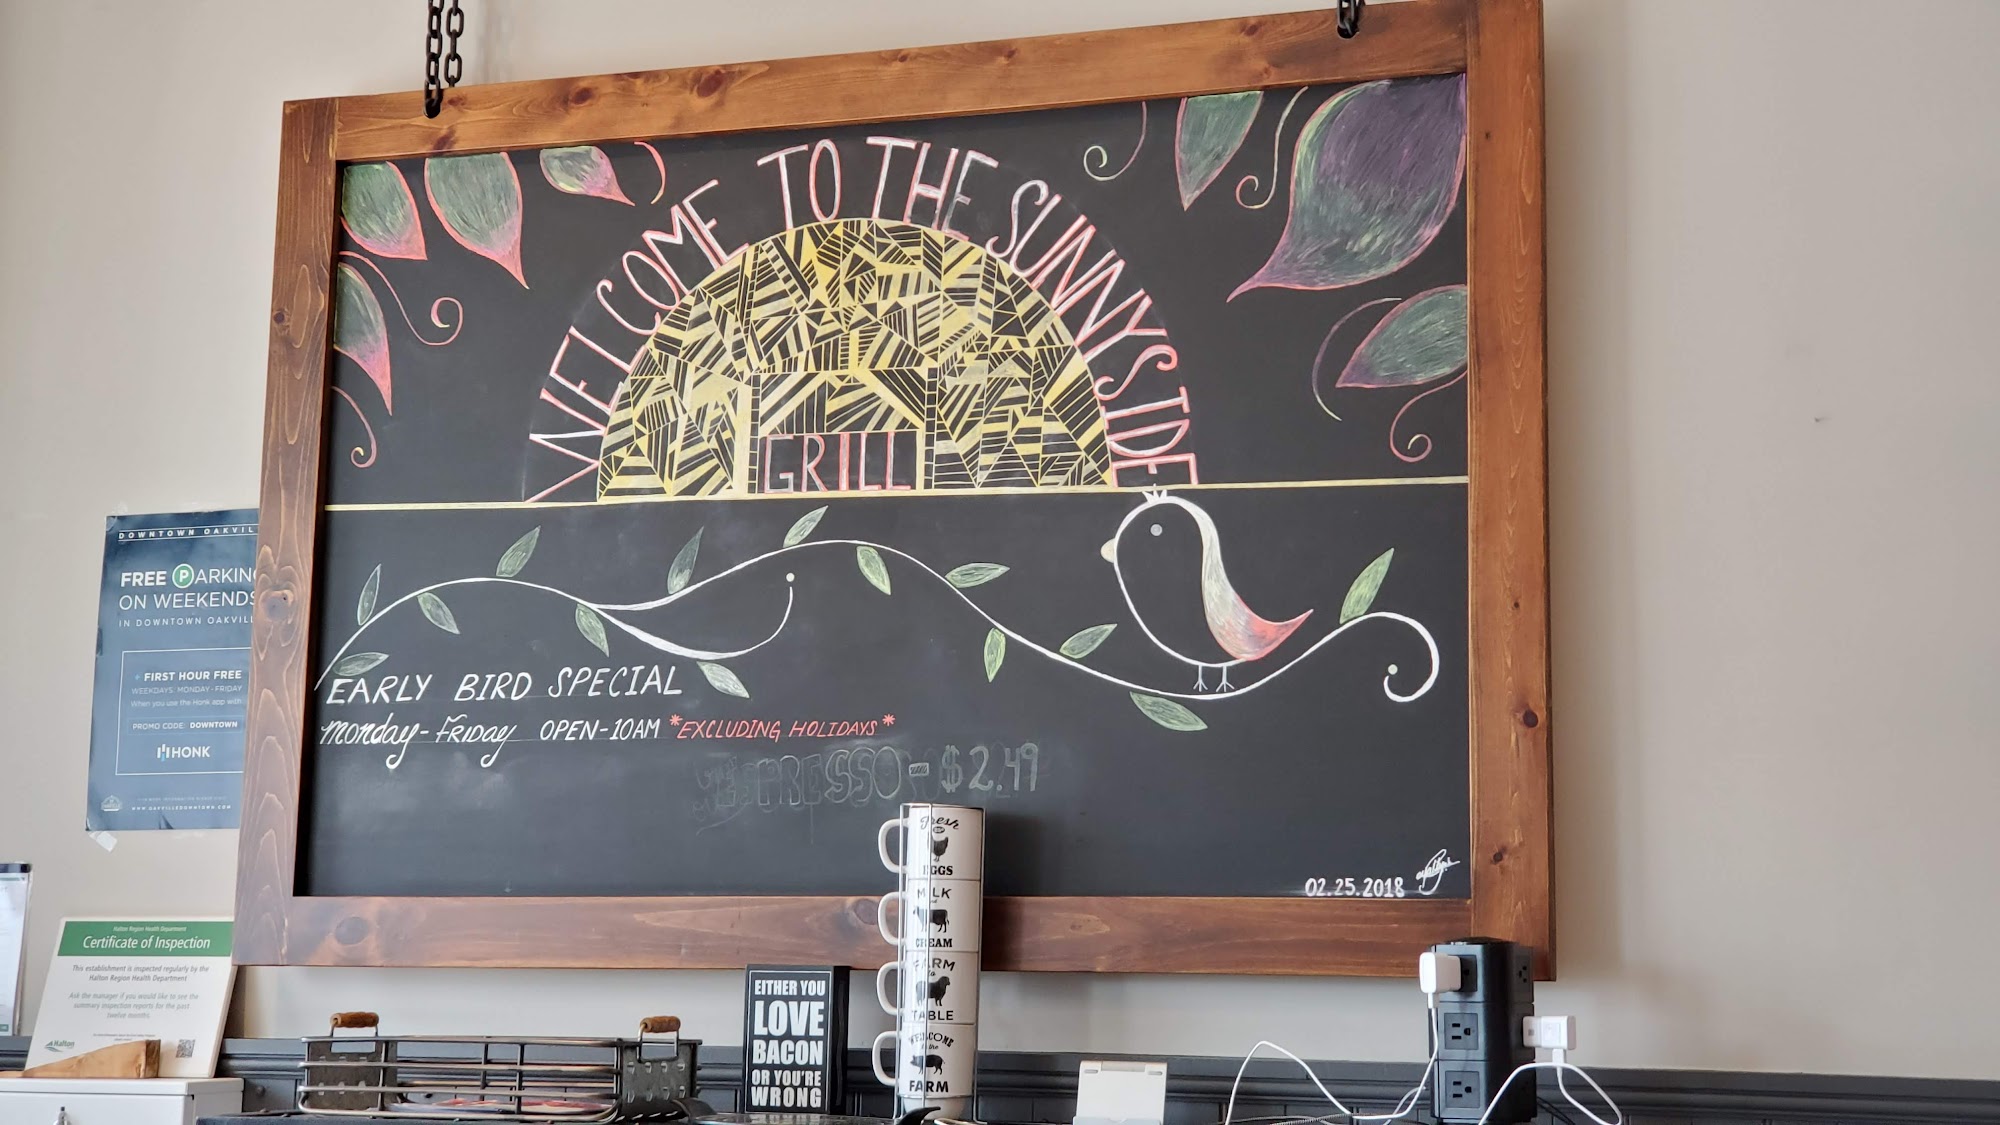 WELCOME TO THE SUNNYSIDE
GRILL
EARLY BIRD SPECIAL
Monday-Friday OPEN-10AM *EXCLUDING HOLIDAYS*
ESPRESSO-$2.49
02.25.2018
DOWNTOWN OAKVILL
FREE PARKING
ON WEEKENDS
IN DOWNTOWN OAKVILL
FIRST HOUR FREE
WEEKDAYS: MONDAY-FRIDAY
When you use the Honk app with
PROMO CODE: DOWNTOWN
HONK
WWW.OAKVILLEDOWNTOWN.COM
Halton Region Health Department
Certificate of Inspection
This establishment is inspected regularly by the
Halton Region Health Department
Ask the manager if you would like to see the
summary inspection reports for the past
twelve months.
Halton
EITHER YOU
LOVE
BACON
OR YOU'RE
WRONG
Fresh
EGGS
MILK
CREAM
FARM
to
TABLE
WELCOME
to the
FARM